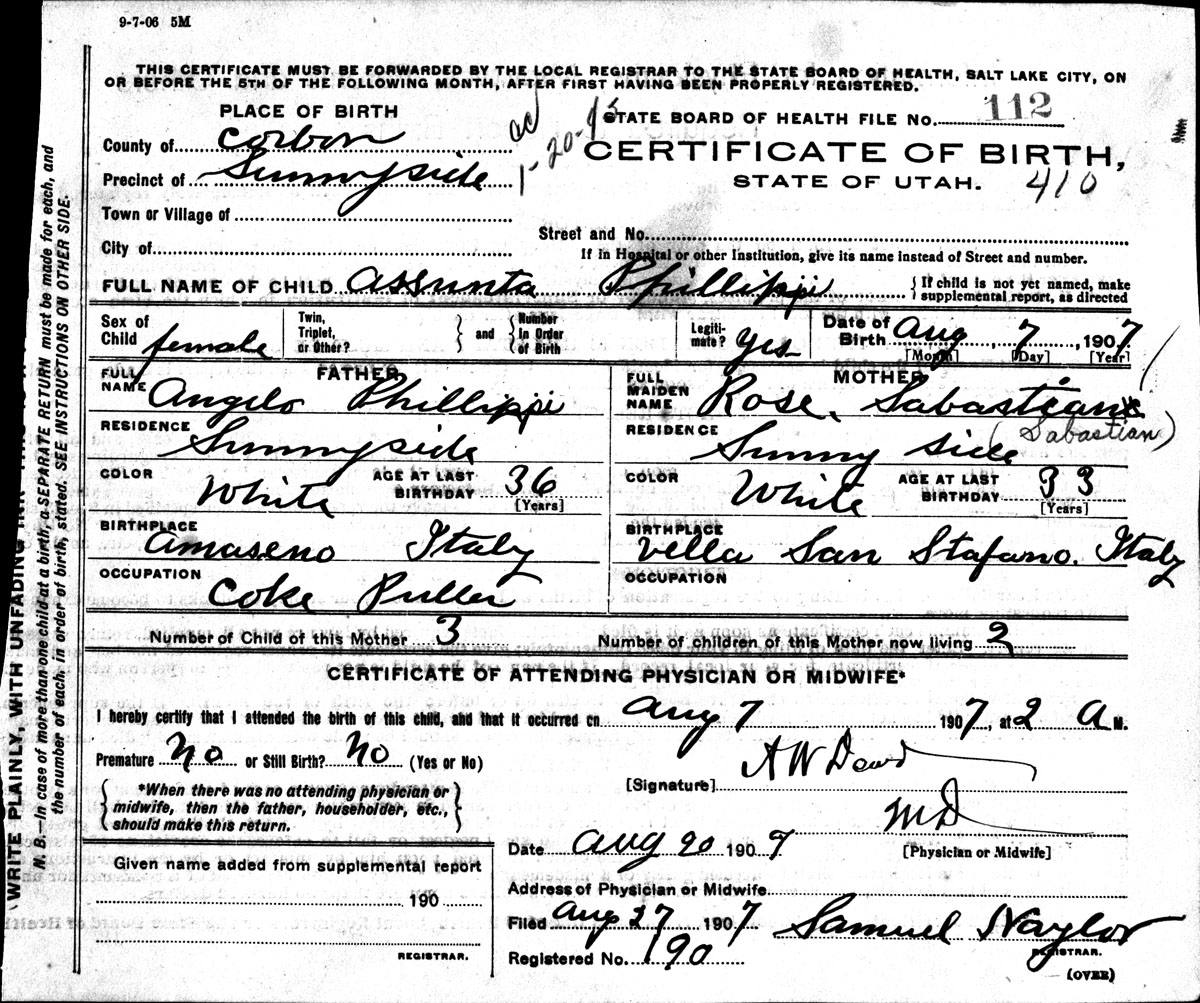 9-7-06 5M
THIS CERTIFICATE MUST BE FORWARDED BY THE LOCAL REGISTRAR TO THE STATE BOARD OF HEALTH, SALT LAKE CITY, ON
OR BEFORE THE 5TH OF THE FOLLOWING MONTH, AFTER FIRST HAVING BEEN PROPERLY REGISTERED.
PLACE OF BIRTH
County of Carbon
Precinct of Sunnyside
Town or Village of
City of
1-20-
STATE BOARD OF HEALTH FILE NO. 112
CERTIFICATE OF BIRTH,
STATE OF UTAH. 410
Street and No.
If in Hospital or other Institution, give its name instead of Street and number.
FULL NAME OF CHILD Assunta Phillippi { If child is not yet named, make
supplemental report, as directed
Sex of Child female
Twin, Triplet, or Other? } and { Number In Order of Birth
Legiti- mate? yes
Date of Birth Aug 7, 1907
[Month] [Day] [Year]
FATHER
FULL NAME Angelo Phillippi
RESIDENCE Sunnyside
COLOR White AGE AT LAST BIRTHDAY 36
[Years]
BIRTHPLACE Amaseno Italy
OCCUPATION Coke Puller
MOTHER
FULL MAIDEN NAME Rose Sabastian
RESIDENCE Sunny side (Sabastian)
COLOR White AGE AT LAST BIRTHDAY 33
[Years]
BIRTHPLACE Vella San Stafano. Italy
OCCUPATION
Number of Child of this Mother 3 Number of children of this Mother now living 2
CERTIFICATE OF ATTENDING PHYSICIAN OR MIDWIFE*
I hereby certify that I attended the birth of this child, and that it occurred on Aug 7 1907, at 2 A M.
Premature No or Still Birth? No (Yes or No)
{ *When there was no attending physician or
midwife, then the father, householder, etc.,
should make this return. }
[Signature] A W Dowd
M D
[Physician or Midwife]
Date Aug 20 1907
Address of Physician or Midwife
Filed Aug 27 1907 Samuel Naylor
REGISTRAR.
Registered No. 190
(OVER)
Given name added from supplemental report
190
REGISTRAR.
WRITE PLAINLY, WITH UNFADING INK
N. B.—In case of more than one child at a birth, a SEPARATE RETURN must be made for each, and
the number of each, in order of birth, stated. SEE INSTRUCTIONS ON OTHER SIDE.